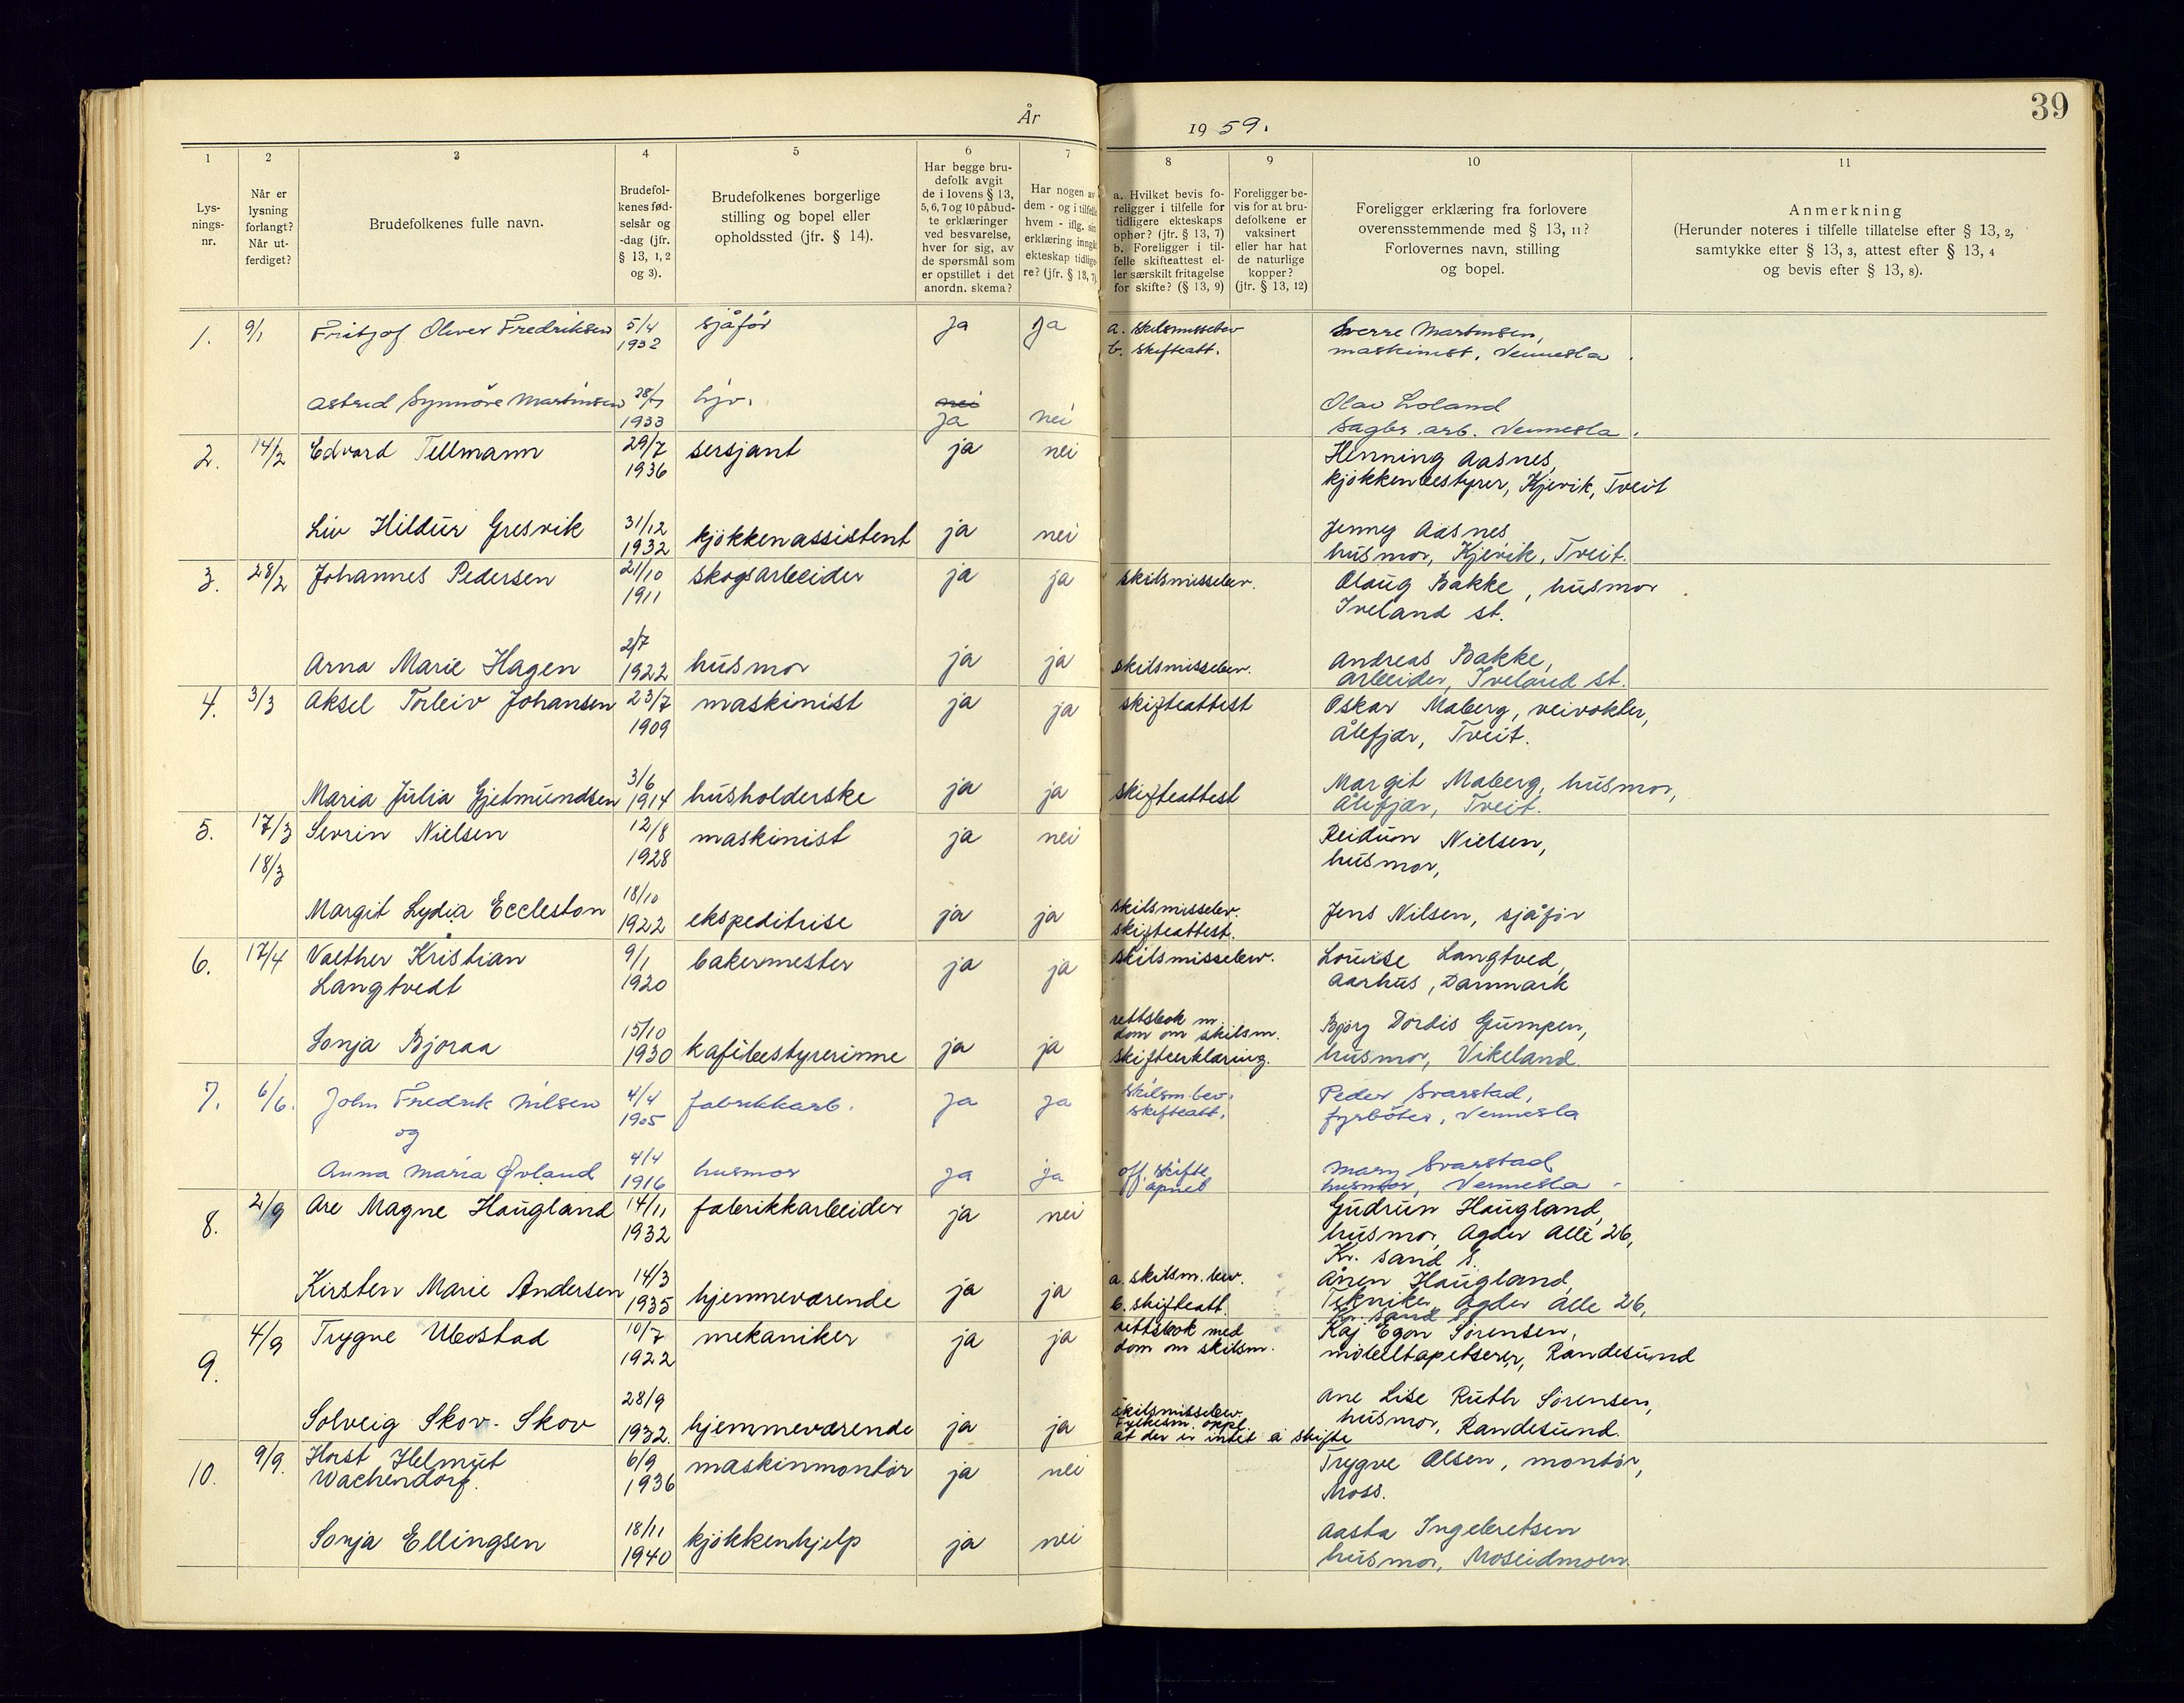 39
År 1959.
1 2 3 4 5 6 7 8 9 10 11
Lys-
nings-
nr.
Når er
lysning
forlangt?
Når ut-
ferdiget?
Brudefolkenes fulle navn.
Brudefol-
kenes fød-
selsår og
-dag (jfr.
§ 13, 1, 2
og 3).
Brudefolkenes borgerlige
stilling og bopel eller
opholdssted (jfr. § 14).
Har begge bru-
defolk avgit
de i lovens § 13,
5, 6, 7 og 10 påbud-
te erklæringer
ved besvarelse,
hver for sig, av
de spørsmål som
er opstillet i det
anordn. skema?
Har nogen av
dem - og i tilfelle
hvem - iflg. sin
erklæring inngåt
ekteskap tidlige-
re? (jfr. § 13, 7)
a. Hvilket bevis fo-
religger i tilfelle for
tidligere ekteskaps
ophør? (jfr. § 13, 7)
b. Foreligger i til-
felle skifteattest el-
ler særskilt fritagelse
for skifte? (§ 13, 9)
Foreligger be-
vis for at bru-
defolkene er
vaksinert
eller har hat
de naturlige
kopper?
(jfr. § 13, 12)
Foreligger erklæring fra forlovere
overensstemmende med § 13, 11?
Forlovernes navn, stilling
og bopel.
Anmerkning
(Herunder noteres i tilfelle tillatelse efter § 13, 2,
samtykke efter § 13, 3, attest efter § 13, 4
og bevis efter § 13, 8).
1. 9/1 Fritjof Oliver Fredriksen 5/4 sjåfør ja ja a. skilsmissebev Sverre Martinsen,
1932 b. skifteatt. maskinist, Vennesla.
Astrid Synnøve Martinsen 28/7 hjv. nei Olav Loland
1933 ja nei sagbr. arb. Vennesla.
2. 14/2 Edvard Tellmann 29/7 sersjant ja nei Henning Aasnes,
1936 kjøkkenbestyrer, Kjevik, Tveit
Liv Hildur Gresvik 31/12 kjøkkenassistent ja nei Jenny Aasnes,
1932 husmor, Kjevik, Tveit.
3. 28/2 Johannes Pedersen 21/10 skogsarbeider ja ja skilsmissebev. Olaug Bakke, husmor
1911 Iveland st.
Arna Marie Hagen 2/7 husmor ja ja skilsmissebev. Andreas Bakke,
1922 arbeider, Iveland st.
4. 3/3 Aksel Torleiv Johansen 23/7 maskinist ja ja skifteattest Oskar Moberg, veivokter,
1909 Ålefjær, Tveit.
Maria Julia Gjetmundsen 3/6 husholderske ja ja skifteattest Margit Moberg, husmor,
1914 Ålefjær, Tveit.
5. 17/3 Sevrin Nielsen 12/8 maskinist ja nei Reidun Nielsen,
18/3 1928 husmor,
Margit Lydia Eccleston 18/10 ekspeditrise ja ja skilsmissebev. Jens Nilsen, sjåfør
1922 skifteattest.
6. 17/4 Valther Kristian 9/1 bakermester ja ja skilsmissebev. Louise Langtved,
Langtvedt 1920 Aarhus, Danmark
Sonja Bjoraa 15/10 kafébestyrerinne ja ja rettsbok m. Bjørg Dordis Gumpen,
1930 dom om skilsm. husmor, Vikeland.
skifteerklæring.
7. 6/6. John Fredrik Nilsen 4/4 fabrikkarb. ja ja skilsm.bev. Peder Svarstad,
og 1905 skifteatt. fyrbøter, Vennesla
Anna Maria Øvland 4/4 husmor ja ja off. skifte Mary Svarstad
1916 åpnet husmor, Vennesla
8. 2/9 Are Magne Haugland 14/11 fabrikkarbeider ja nei Gudrun Haugland,
1932 husmor, Agder Allè 26,
Kr. sand S.
Kirsten Marie Andersen 14/3 hjemmeværende ja ja a. skilsm. bev. Ånen Haugland,
1935 b. skifteatt. Tekniker, Agder Alle 26,
Kr. sand S.
9. 4/9 Trygve Ubostad 10/7 mekaniker ja ja rettsbok med Kaj Egon Sørensen,
1922 dom om skilsm. møbeltapetserer, Randesund
Solveig Skov-Skov 28/9 hjemmeværende ja ja skilsmissebev. Ane Lise Ruth Sørensen,
1932. Fylkesm. oppl. husmor, Randesund.
at der er intet å skifte
10. 9/9. Horst Helmut 6/9 maskinmontør ja nei Trygve Olsen, montør,
Wachendorf. 1936 Moss.
Sonja Ellingsen 18/11 kjøkkenhjelp ja nei Aasta Ingebretsen
1940 husmor, Moseidmoen.